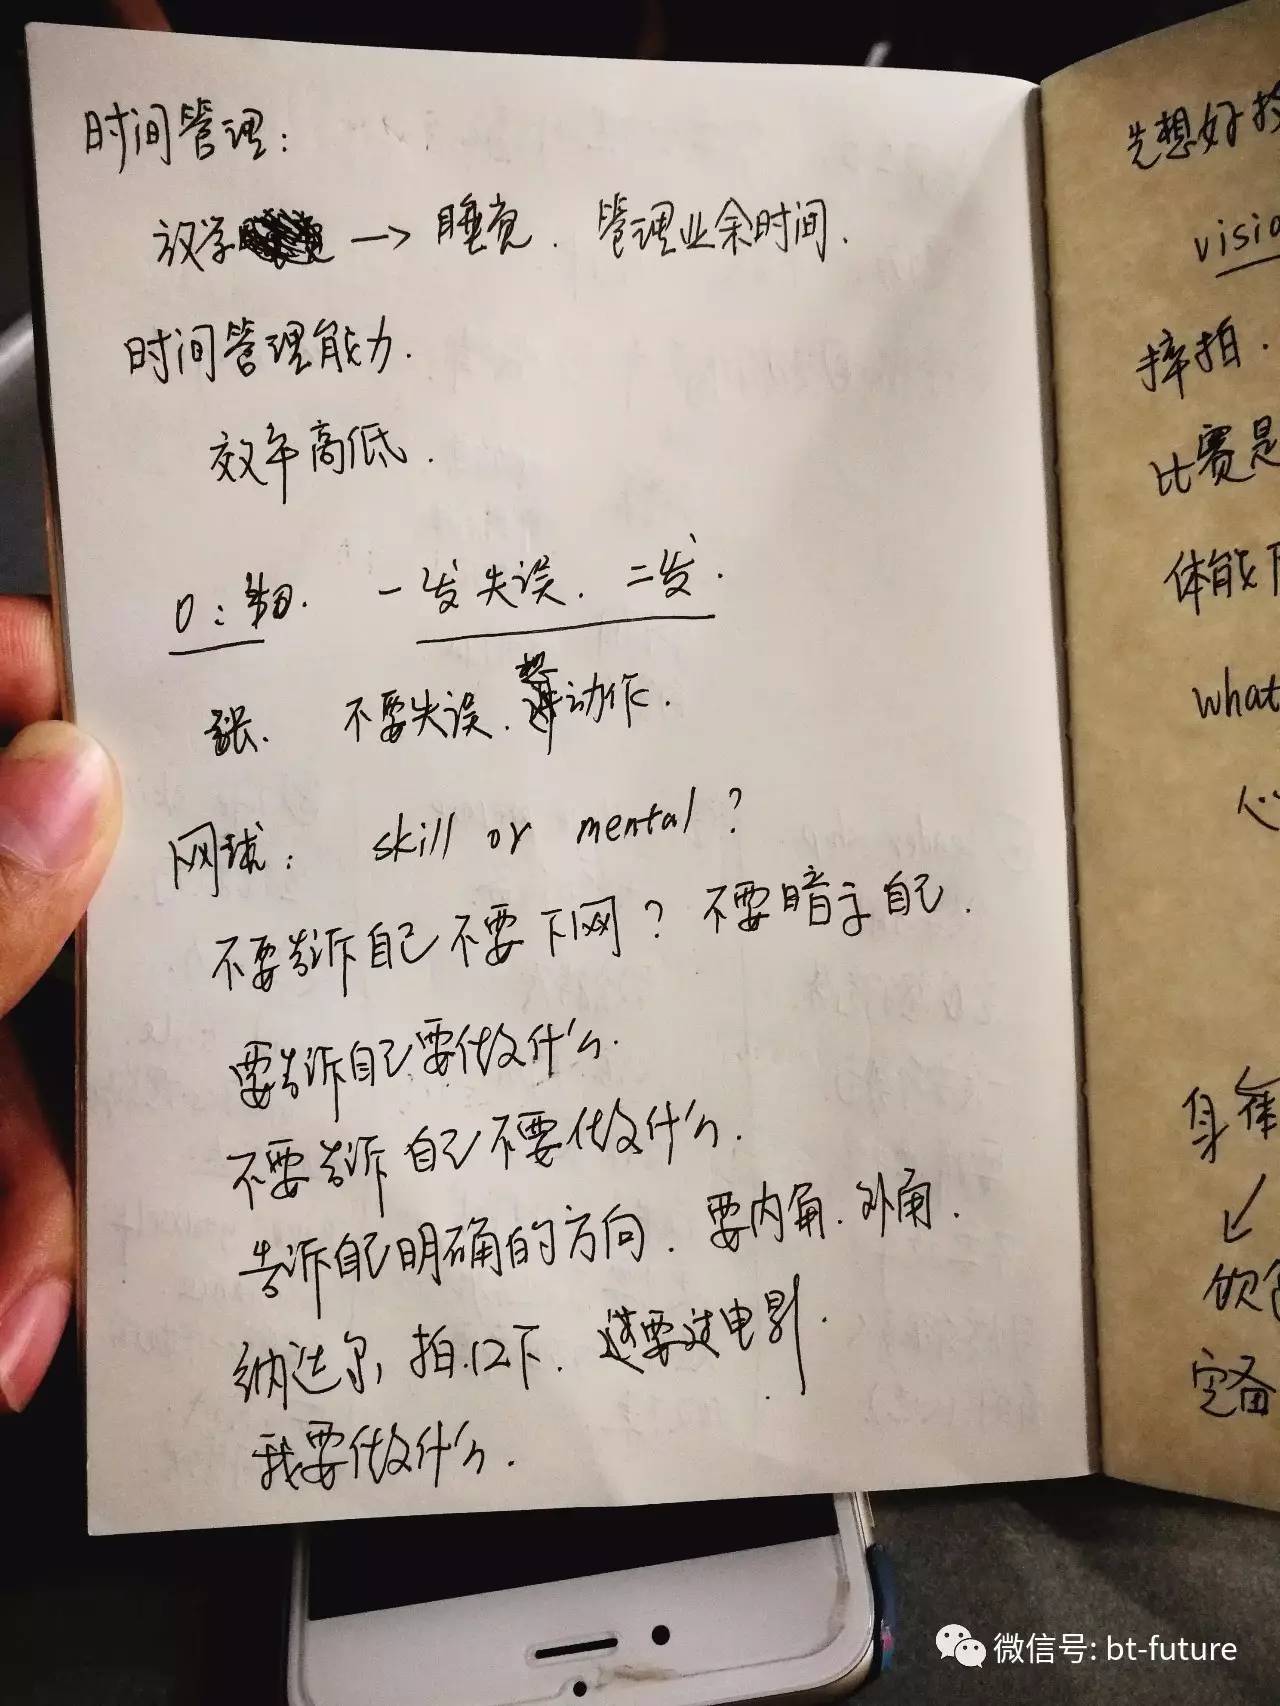 时间管理：
放学 → 睡觉. 管理业余时间.
时间管理能力.
效率高低.
0： 一发失误. 二发.
不要失误. 想 动作.
网球： skill or mental ?
不要告诉自己不要下网？不要暗示自己.
要告诉自己要做什么.
不要告诉自己不要做什么.
告诉自己明确的方向. 要内角. 外角.
纳达尔, 拍12下. 要过电影.
我要做什么.
先想好
visio
摔拍.
比赛是
体能下
what
心
身体
↙
饮食
完备
微信号: bt-future